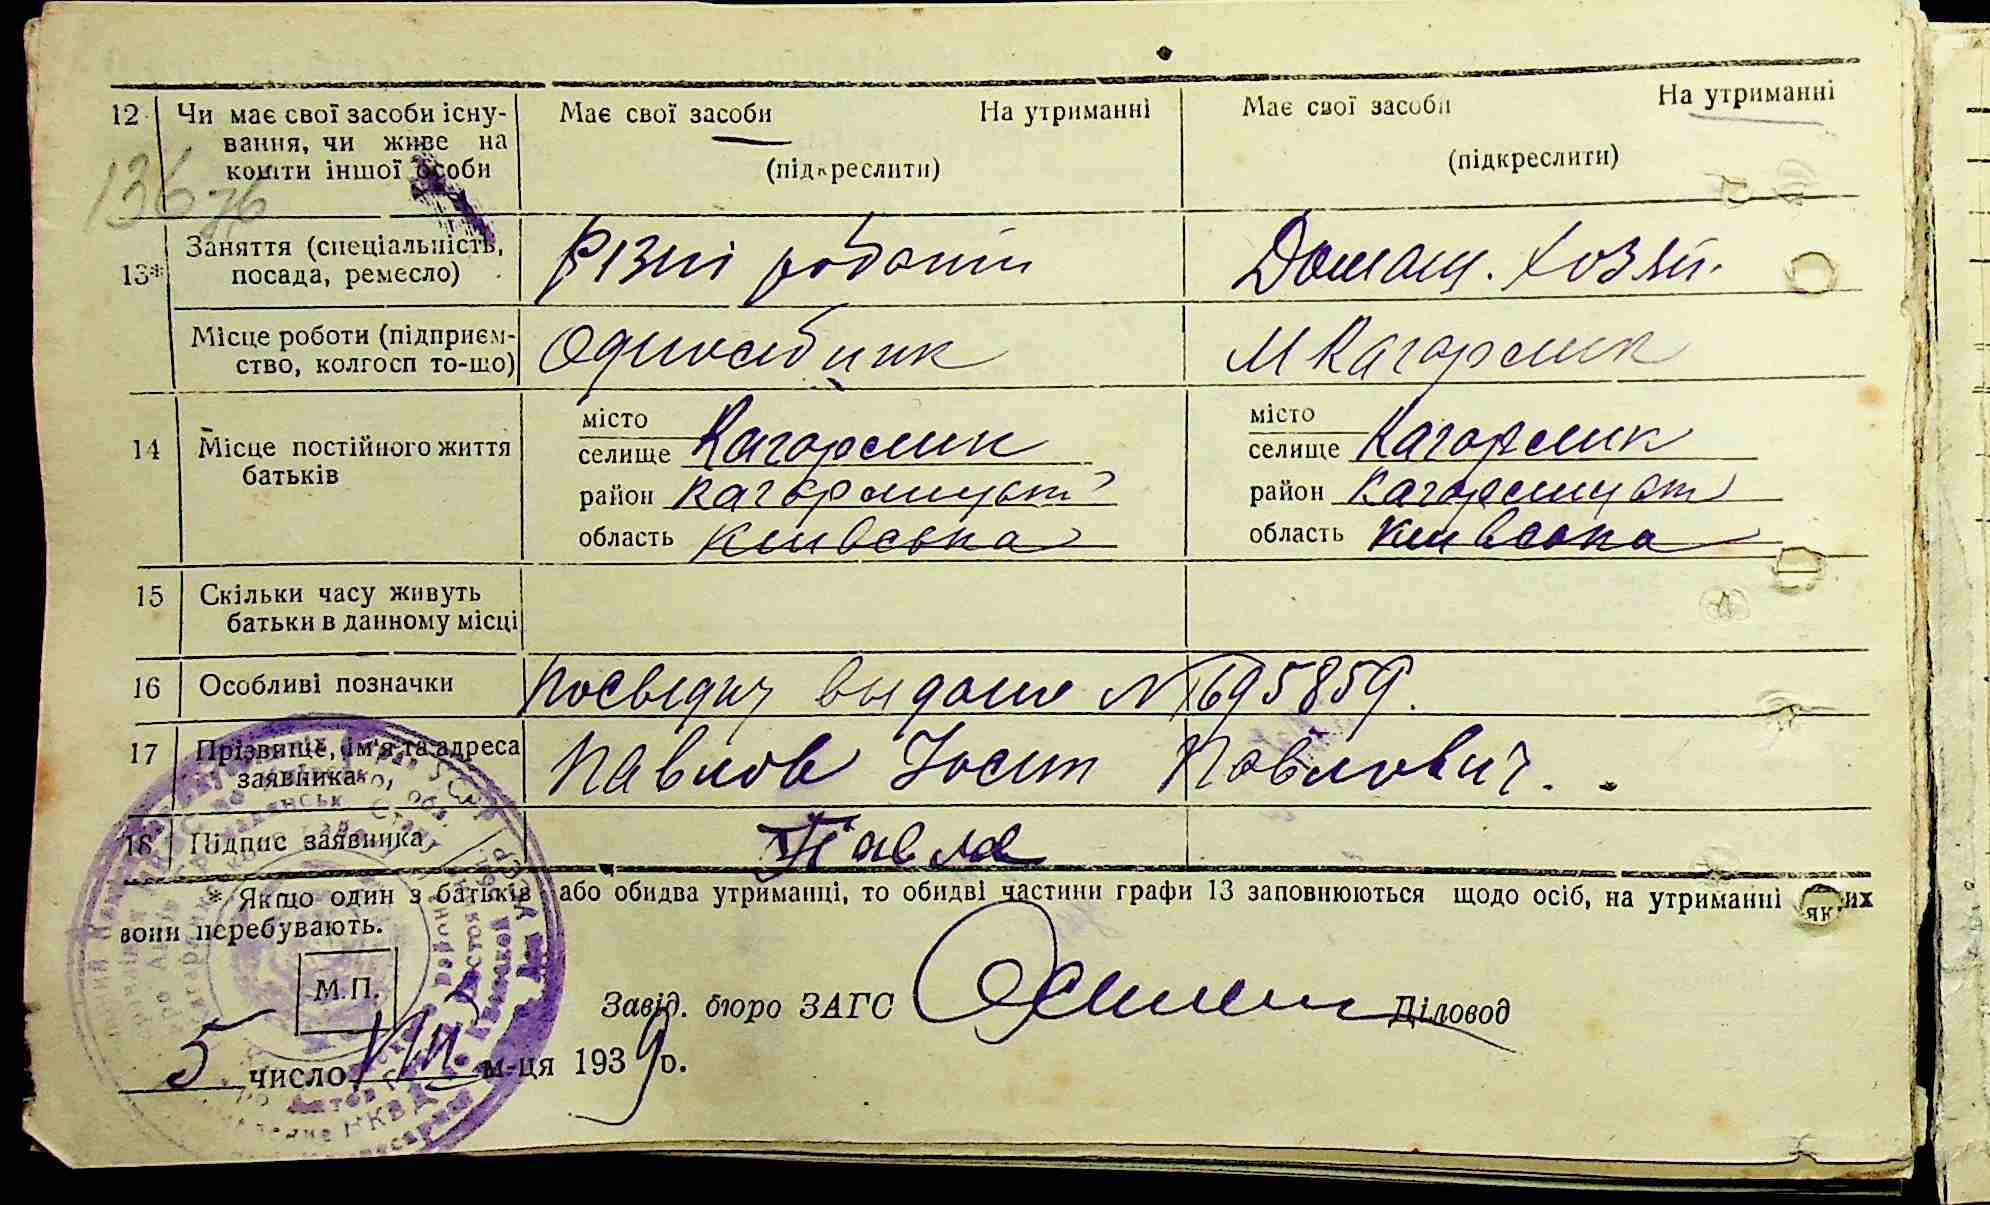 12 Чи має свої засоби існу- Має свої засоби На утриманні Має свої засоби На утриманні
вання, чи живе на
кошти іншої особи (підкреслити) (підкреслити)
136 76
13* Заняття (спеціальність, Різні роботи Домашн. хозяй.
посада, ремесло)
Місце роботи (підприєм- Одиносібник М Кагорлик
ство, колгосп то-що)
14 Місце постійного життя місто місто
батьків селище Кагорлик селище Кагорлик
район Кагорлицьк район Кагорлицьк
область Київська область Київська
15 Скільки часу живуть
батьки в данному місці
16 Особливі позначки Посвідку выдано № 695859.
17 Прізвище, ім'я та адреса Павлов Йосип Павлович.
заявника
18 Підпис заявника Павлов
* Якщо один з батьків або обидва утриманці, то обидві частини графи 13 заповнюються щодо осіб, на утриманні яких
вони перебувають.
М.П.
Завід. бюро ЗАГС Діловод
5 число VIII м-ця 1939 р.